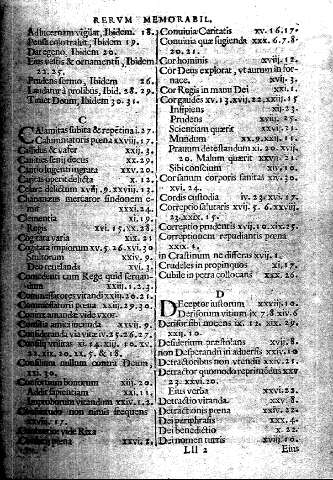 RERUM MEMORABIL.
Ad lucernam vigilat, Ibidem. 18.
Pensū ... tractat, Ibidem 19.
Dat egeno, Ibidem 20.
Eius vestis & ornamenti, Ibidem
22. 25.
Prudens sermo, Ibidem 26.
Laudatur à prolibus, Ibid. 28. 29.
Timet Deum, Ibidem 30. 31.
C
CAlamitas subita & repētina i. 27.
Calumniatoris pœna xxviij. 17.
Callidus & vafer xxij. 3.
Canities senij decus xx. 29.
Cantio lugenti ingrata xxv. 20.
Caritas operit delicta x. 12.
Celare delictum xvij. 9. xxviij. 13.
mercator sindonem
xxxi. 24.
Clementia xi. 19.
Regis xvi. 15. xx. 28.
Cogitata varia xix. 21
Cogitatus impiorum xv. 5. 26. xvi. 30
Stultorum xxiv. 9.
Deo revelanda xvi. 3.
Comedenti cum Rege quid servan-
dum xxiij. 1. 2. 3.
vitanda xxiij. 20. 21.
pœna xxiij. 29. 30.
amandæ vide uxor
amici iucunda xxvij. 9.
via vitæ iv. 25. 26. 27.
Consilij utilitas xi. 14. xij. 10. xv.
22. xix. 20. xx. 5. & 18.
Consilium nullum contra Deum,
xxi. 30.
bonorum xiij. 20.
Addit sapientiam xxi. 11.
Improborum vitandum xxiv. 1. 2.
non nimis frequens
xxv. 17.
vide Rixa
pœna xxvi. 2.
Convivia Caritatis xv. 16. 17.
Convivia quæ fugienda xxx. 6. 7. 8.
20. 21.
Cor hominis xviij. 12.
Cor Deus explorat, vt aurum in for-
nace, xvij. 3.
Cor Regis in manu Dei xxi. 1.
Cor gaudēs xv. 13. xvij. 22. xxiij. 15
Insipiens xij. 23.
Prudens xviij. 25.
Scientiam quærit xxvij. 21.
Mundum xx. 9. xxij. 11.
Pravum detestandum xi. 20. xvij.
20. Malum quærit xxvij. 21.
Sibi conscium xiv. 10.
Cor sanum corporis sanitas xiv. 30.
xvi. 24.
Cordis custodia iv. 23. xvi. 17.
Correptio salutaris xvij. 5. 6. xxviij.
23. xxix. 15.
Correptio prudenti xvij. 10. xix. 25.
Correptionem repudiantis pœna
xxix. 1.
in Crastinum ne differas xxvij. 1.
Crudeles in propinquos xi. 17.
Cubile in petra collocans xxx. 26.
D
DEceptor iustorum xxviij. 10.
Derisorum vitium ix. 7. 8. xiv. 6
Derisor sibi inocens ix. 12. xix. 29.
xxij. 10.
Desiderium præstolans xvij. 8.
non Desperandū in adversis xxiv. 10
Detractoribus non vtendū xxiv. 21.
Detractor quomodo reprimēdus xxv
23. xxvi. 20.
Eius verba xxvi. 22.
Detractio vitanda. xxv. 8.
Detractionis pœna xxiv. 22.
Dei periphrasis xxx. 4.
Dei benedictio x. 22.
Dei nomen turris xviij. 10.
Lll 2 Eius